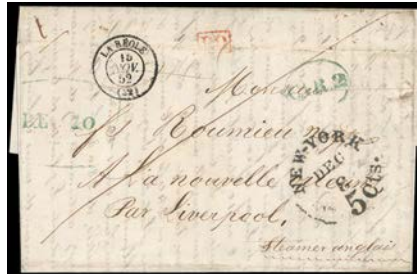 LA RÉOLE
15
NOV.
52
(32)
PD
C.R.2
Monsieur
Js Roumieu
NEW-YORK
DEC
5 Cts.
A La nouvelle
Par Liverpool,
Steamer anglais